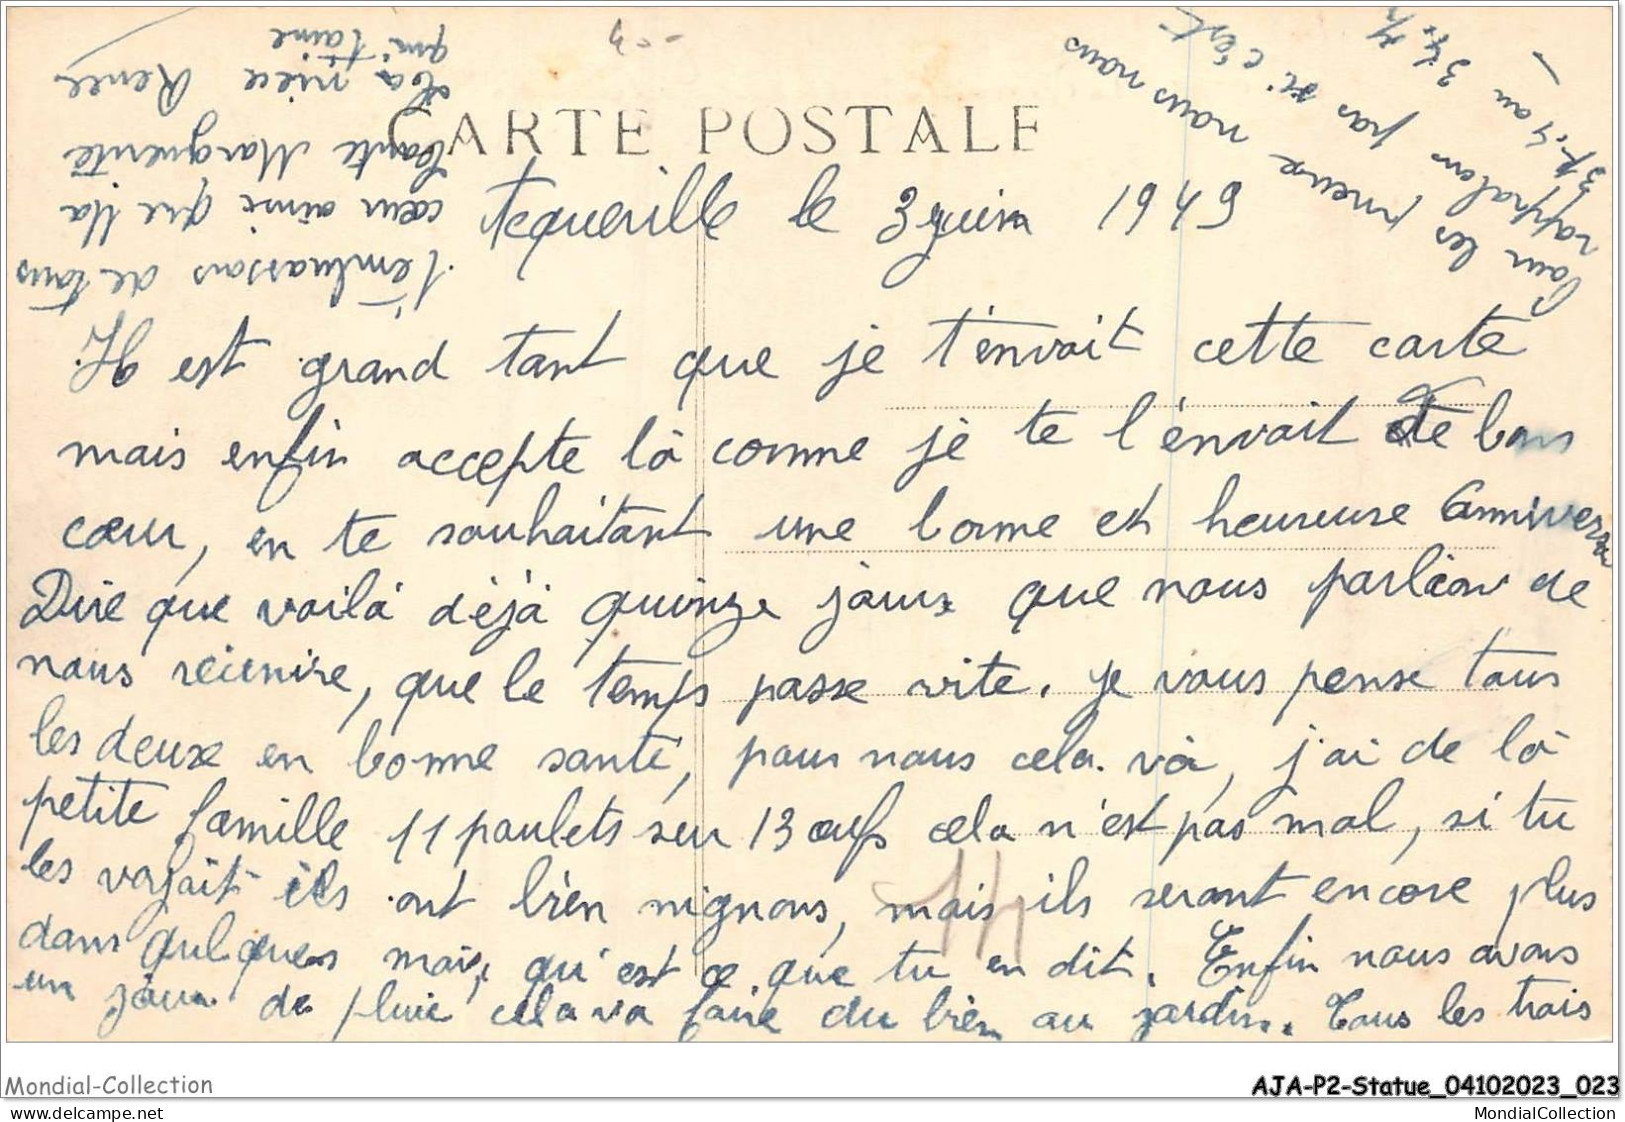 CARTE POSTALE
Fequerille le 3 juin 1949
Il est grand tant que je t'envoit cette carte
mais enfin accepte là comme je te l'envoit de bons
cœur, en te souhaitant une bonne et heureuse anniversai
Dire que voilà déjà quinze jours que nous parlions de
nous réunire, que le temps passe vite. je vous pense tous
les deux en bonne santé, pour nous cela. và, j'ai de là
petite famille 11 poulets sur 13 œufs cela n'est pas mal, si tu
les voyait ils ont bien mignons, mais ils seront encore plus
dans quelques mois, qu'est ce que tu en dit. Enfin nous avons
un jour de pluie cela va faire du bien au jardin. Tous les trois
t'embrassons de tous
cœur aimé que ta
tante Marguerite
ta nièce Renée
qui t'aime
Pour les pneux nous nous
rappelons pas si c'est
31.4 au
Mondial-Collection
AJA-P2-Statue_04102023_023
www.delcampe.net
MondialCollection